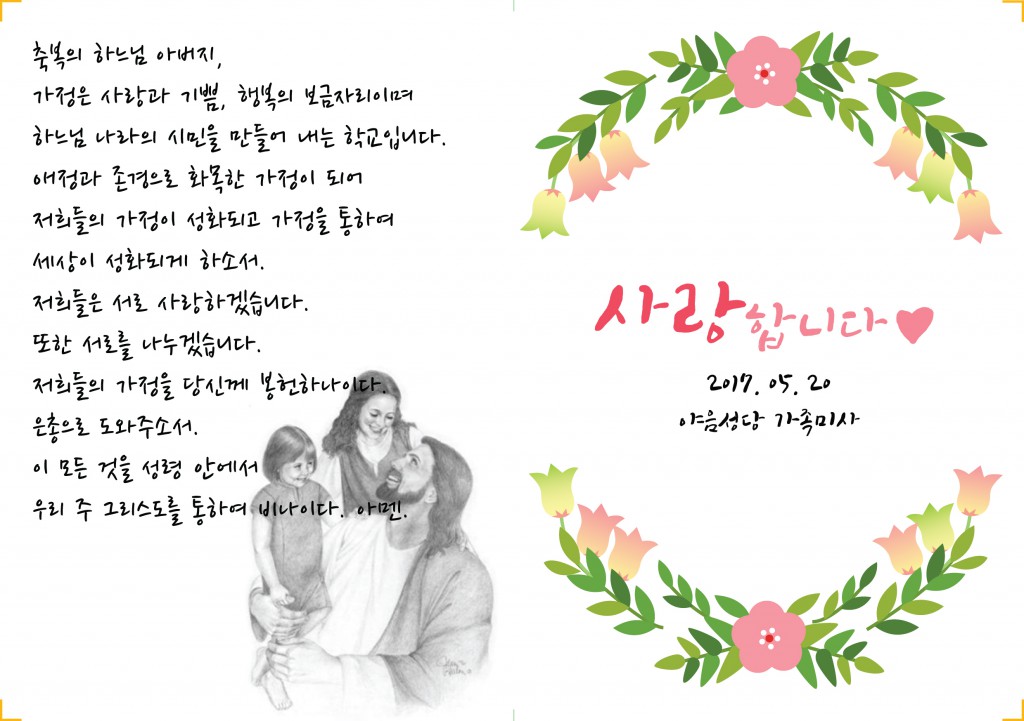 축복의 하느님 아버지,
가정은 사랑과 기쁨, 행복의 보금자리이며
하느님 나라의 시민을 만들어 내는 학교입니다.
애정과 존경으로 화목한 가정이 되어
저희들의 가정이 성화되고 가정을 통하여
세상이 성화되게 하소서.
저희들은 서로 사랑하겠습니다.
또한 서로를 나누겠습니다.
저희들의 가정을 당신께 봉헌하나이다.
은총으로 도와주소서.
이 모든 것을 성령 안에서
우리 주 그리스도를 통하여 비나이다. 아멘.
사랑합니다♥
2017. 05. 20
야음성당 가족미사